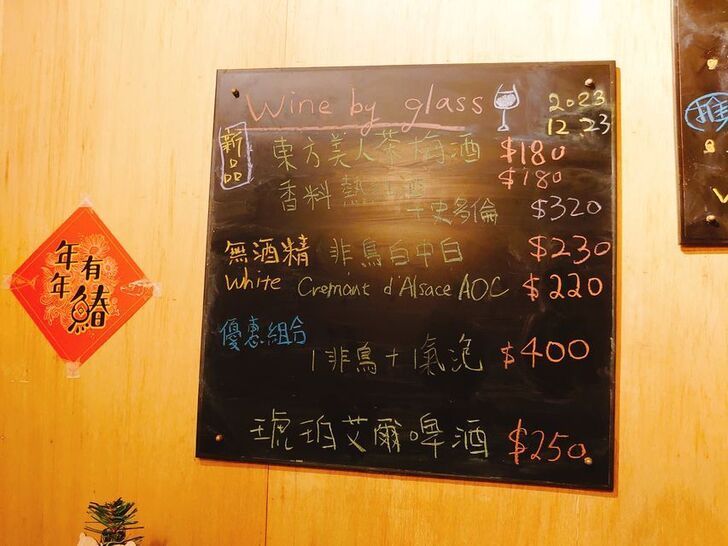 Wine by glass
2023
12.23
新品
東方美人茶梅酒 $180
香料熱紅酒 $180
+史多倫 $320
無酒精 非鳥白中白 $230
White Cremant d'Alsace AOC $220
優惠組合
1非鳥+1氣泡 $400
琥珀艾爾啤酒 $250
年年有鰆
推